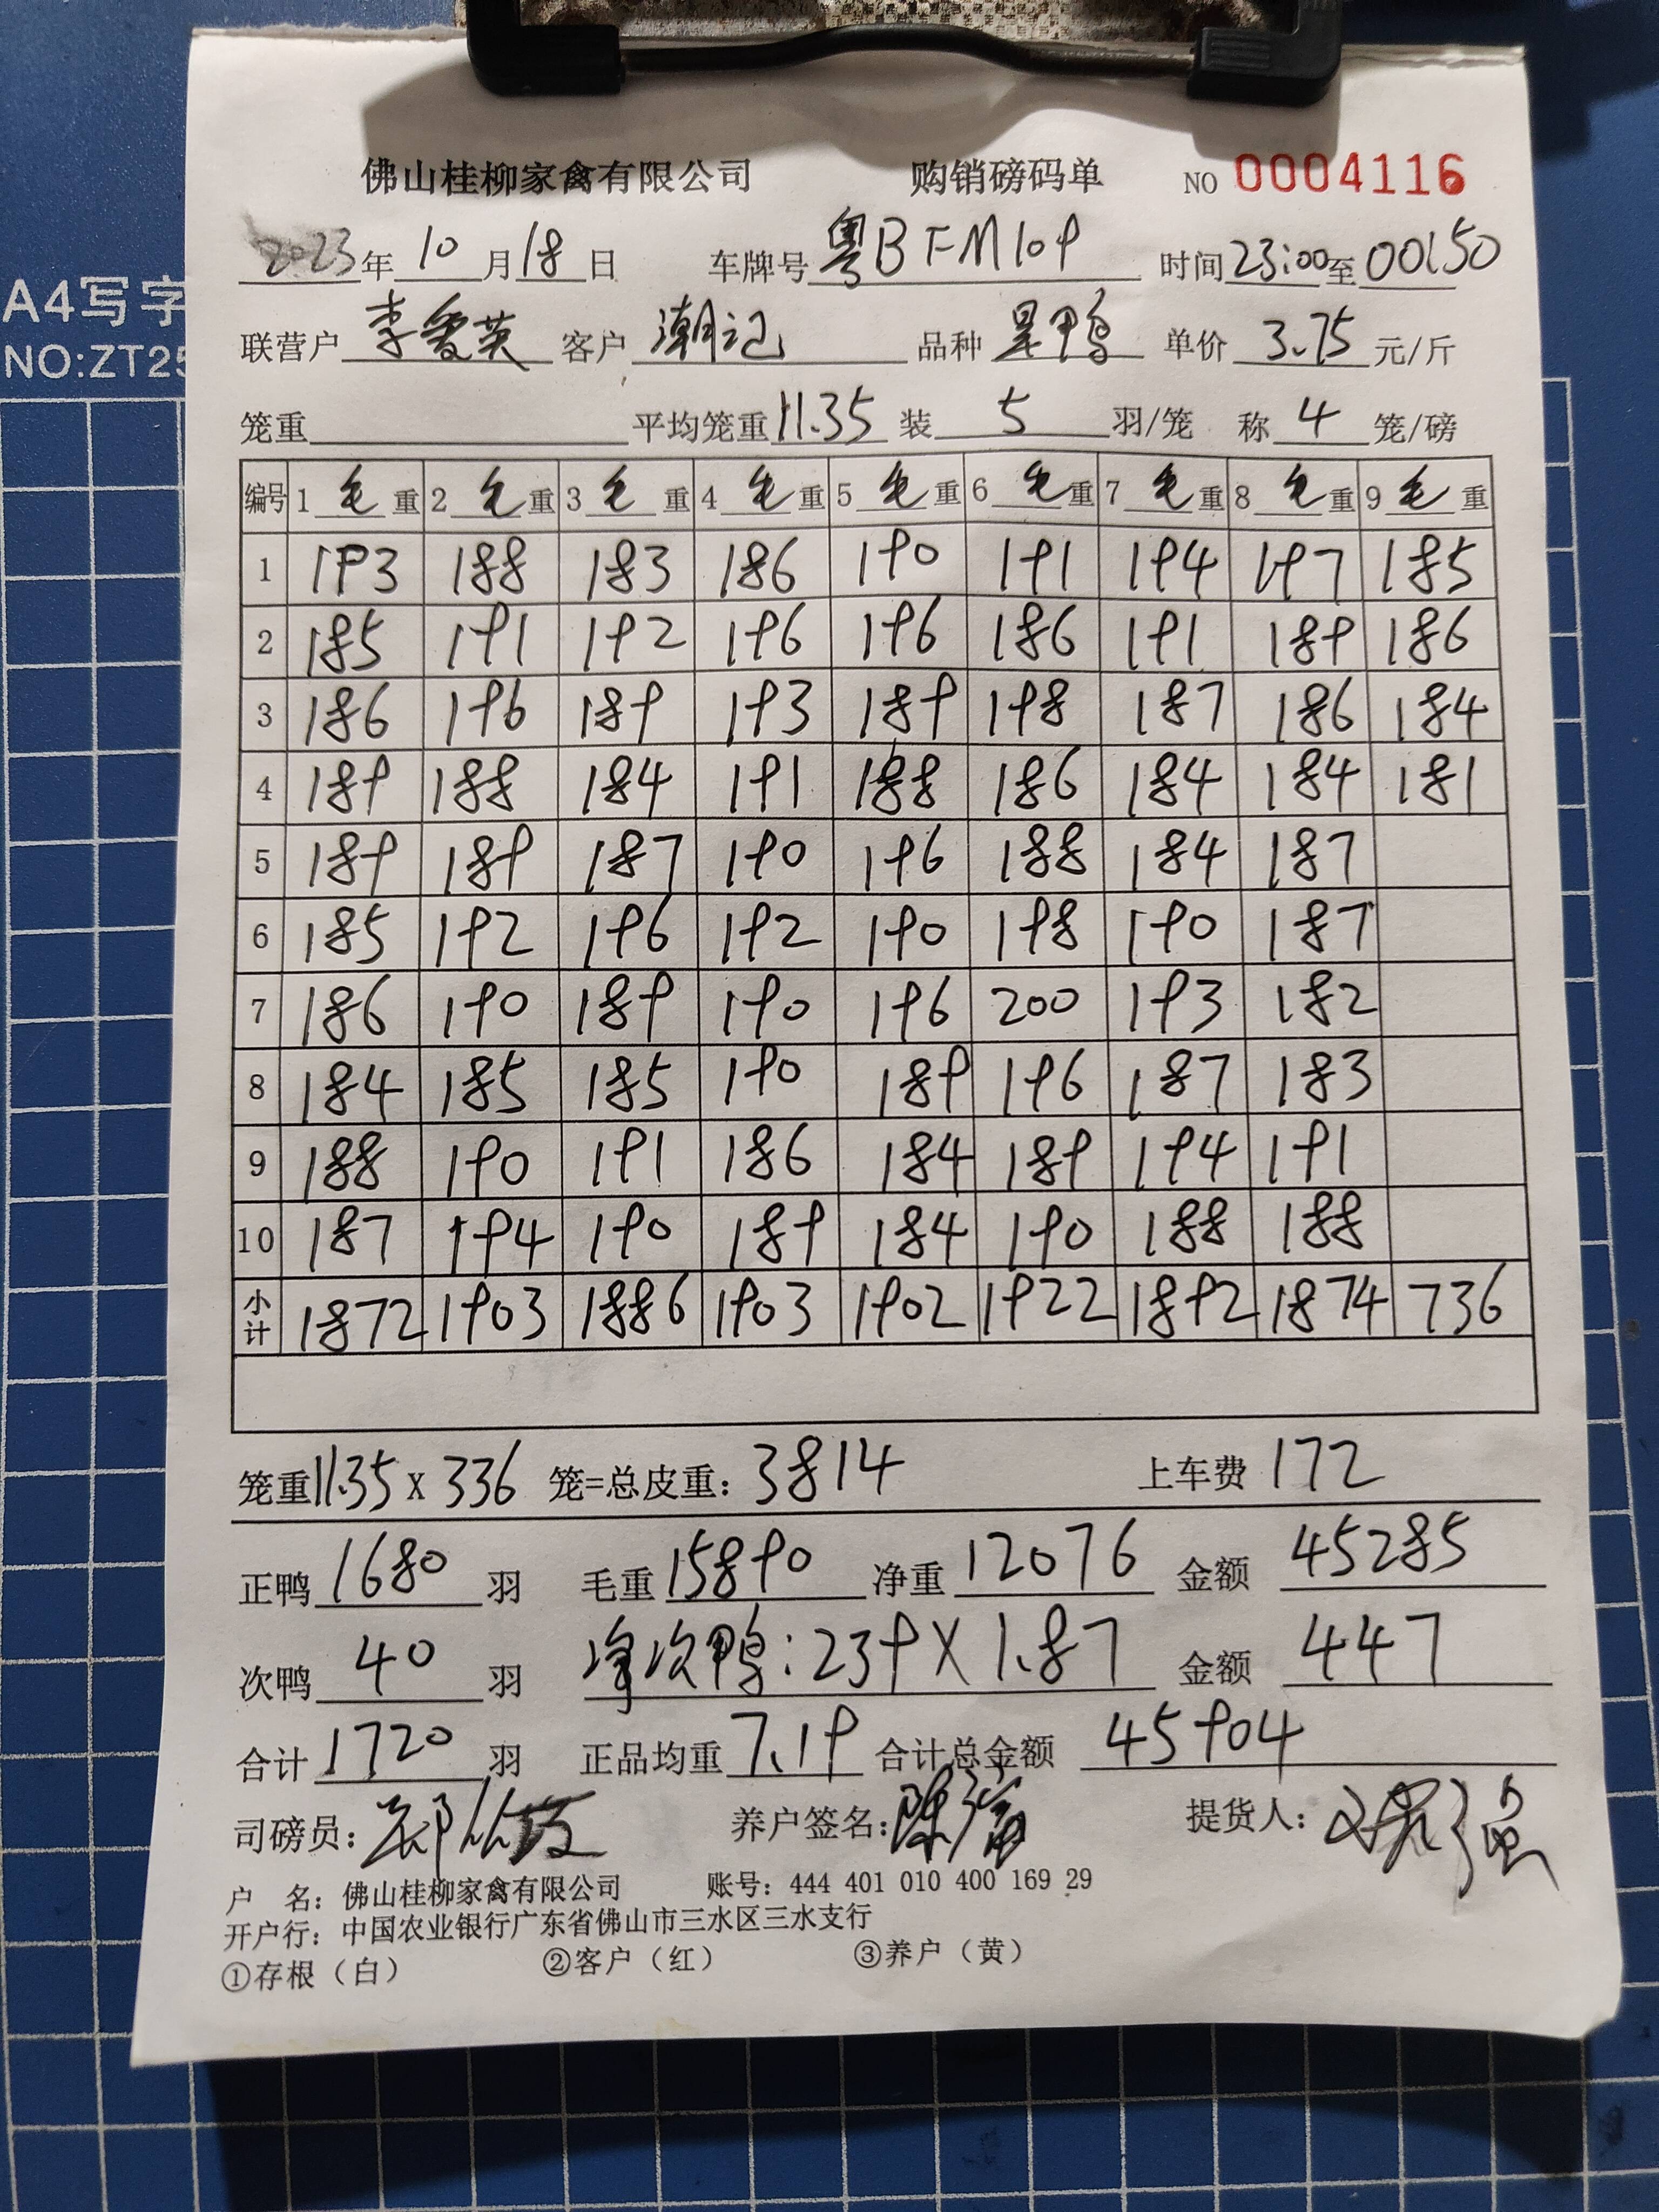 A4写字
NO:ZT25
佛山桂柳家禽有限公司 购销磅码单 NO 0004116
2023年10月18日 车牌号粤BFM109 时间23:00至00:50
联营户李爱英 客户潮记 品种 鸭 单价3.75元/斤
笼重 平均笼重11.35装5羽/笼 称4笼/磅
编号 1毛重 2毛重 3毛重 4毛重 5毛重 6毛重 7毛重 8毛重 9毛重
1 193 188 183 186 190 191 194 197 185
2 185 191 192 196 196 186 191 189 186
3 186 196 189 193 189 198 187 186 184
4 189 188 184 191 188 186 184 184 181
5 189 189 187 190 196 188 184 187
6 185 192 196 192 190 198 190 187
7 186 190 189 190 196 200 193 182
8 184 185 185 190 189 196 187 183
9 188 190 191 186 184 189 194 191
10 187 194 190 189 184 190 188 188
小计 1872 1903 1886 1903 1902 1922 1892 1874 736
笼重11.35X336笼=总皮重：3814 上车费172
正鸭1680羽 毛重15890净重12076 金额45285
次鸭40羽 净次鸭:239X1.87 金额447
合计1720羽 正品均重7.19合计总金额45904
司磅员： 养户签名： 提货人：
户 名：佛山桂柳家禽有限公司 账号：444 401 010 400 169 29
开户行：中国农业银行广东省佛山市三水区三水支行
①存根（白） ②客户（红） ③养户（黄）